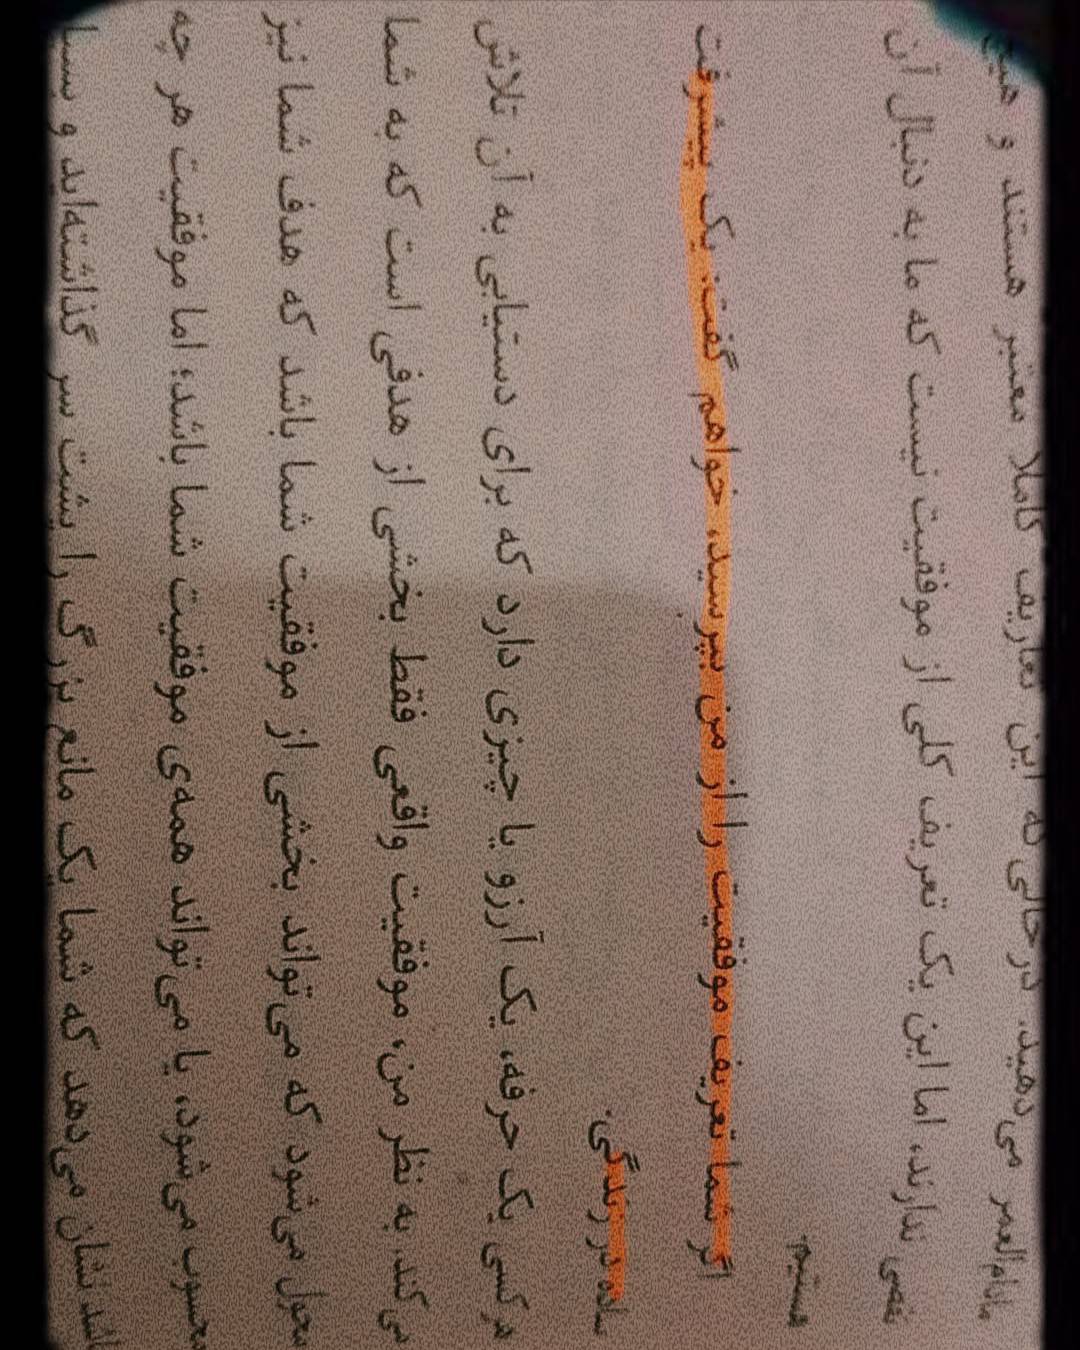 مادام‌العمر می‌دهید. در حالی که این تعاریف کاملا معتبر هستند و هیچ
نقصی ندارند، اما این یک تعریف کلی از موفقیت نیست که ما به دنبال آن
هستیم.
اگر شما تعریف موفقیت را از من بپرسید، خواهم گفت: یک پیشرفت
ساده در زندگی.
هر کسی یک حرفه، یک آرزو یا چیزی دارد که برای دستیابی به آن تلاش
می‌کند. به نظر من، موفقیت واقعی فقط بخشی از هدفی است که به شما
محول می‌شود که می‌تواند بخشی از موفقیت شما باشد که هدف شما نیز
محسوب می‌شود، یا می‌تواند همه‌ی موفقیت شما باشد؛ اما موفقیت هر چه
باشد نشان می‌دهد که شما یک مانع بزرگ را پشت سر گذاشته‌اید و